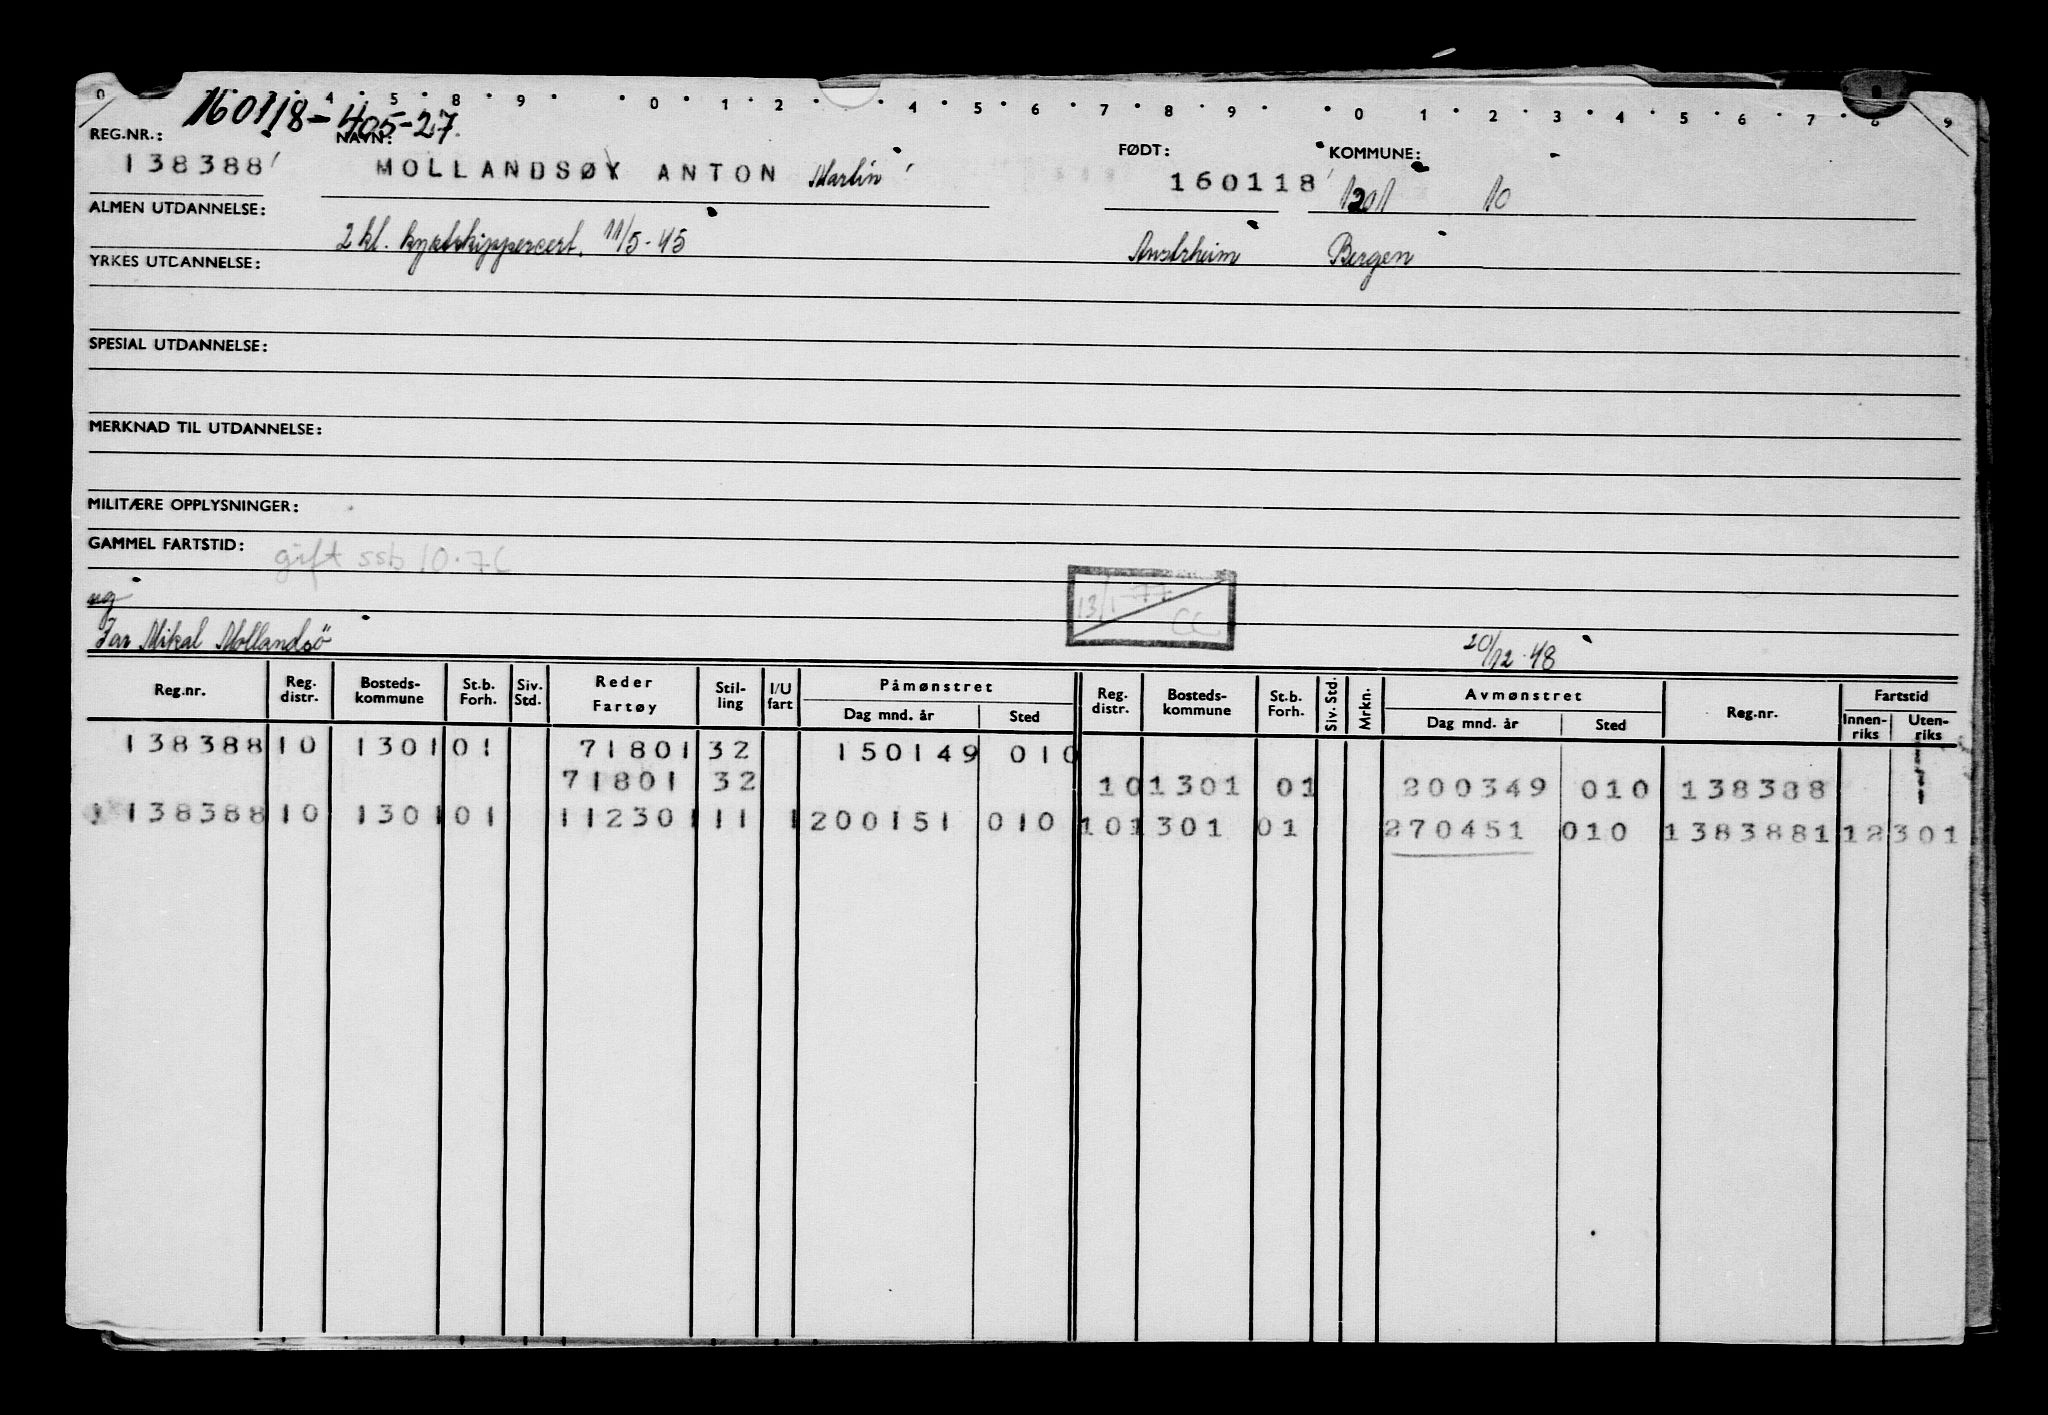 0 4 5 8 9 0 1 2 4 5 6 7 8 9 0 1 2 3 4 5 6 7 8 9
160118-405-27.
REG.NR.: NAVN: FØDT: KOMMUNE:
138388 MOLLANDSØY ANTON Martin 160118 1201 10
ALMEN UTDANNELSE:
2 kl. kystskippercert. 11/5-45 Austrheim Bergen
YRKES UTDANNELSE:
SPESIAL UTDANNELSE:
MERKNAD TIL UTDANNELSE:
MILITÆRE OPPLYSNINGER:
GAMMEL FARTSTID: gift ssb 10.76
13/1-77 CC
ug
Far Mikal Mollandsö 20/12-48
Reg.nr. Reg. distr. Bosteds-kommune St.b. Forh. Siv. Std. Reder Fartøy Stil-ling I/U fart Påmønstret Dag mnd. år Sted Reg. distr. Bosteds-kommune St.b. Forh. Siv. Std. Mrkn. Avmønstret Dag mnd. år Sted Reg.nr. Fartstid Innen-riks Uten-riks
138388 10 1301 01 71801 32 150149 010
71801 32 10 1301 01 200349 010 138388
138388 10 1301 01 112301 11 1 200151 010 10 1301 01 270451 010 1383881 12 301